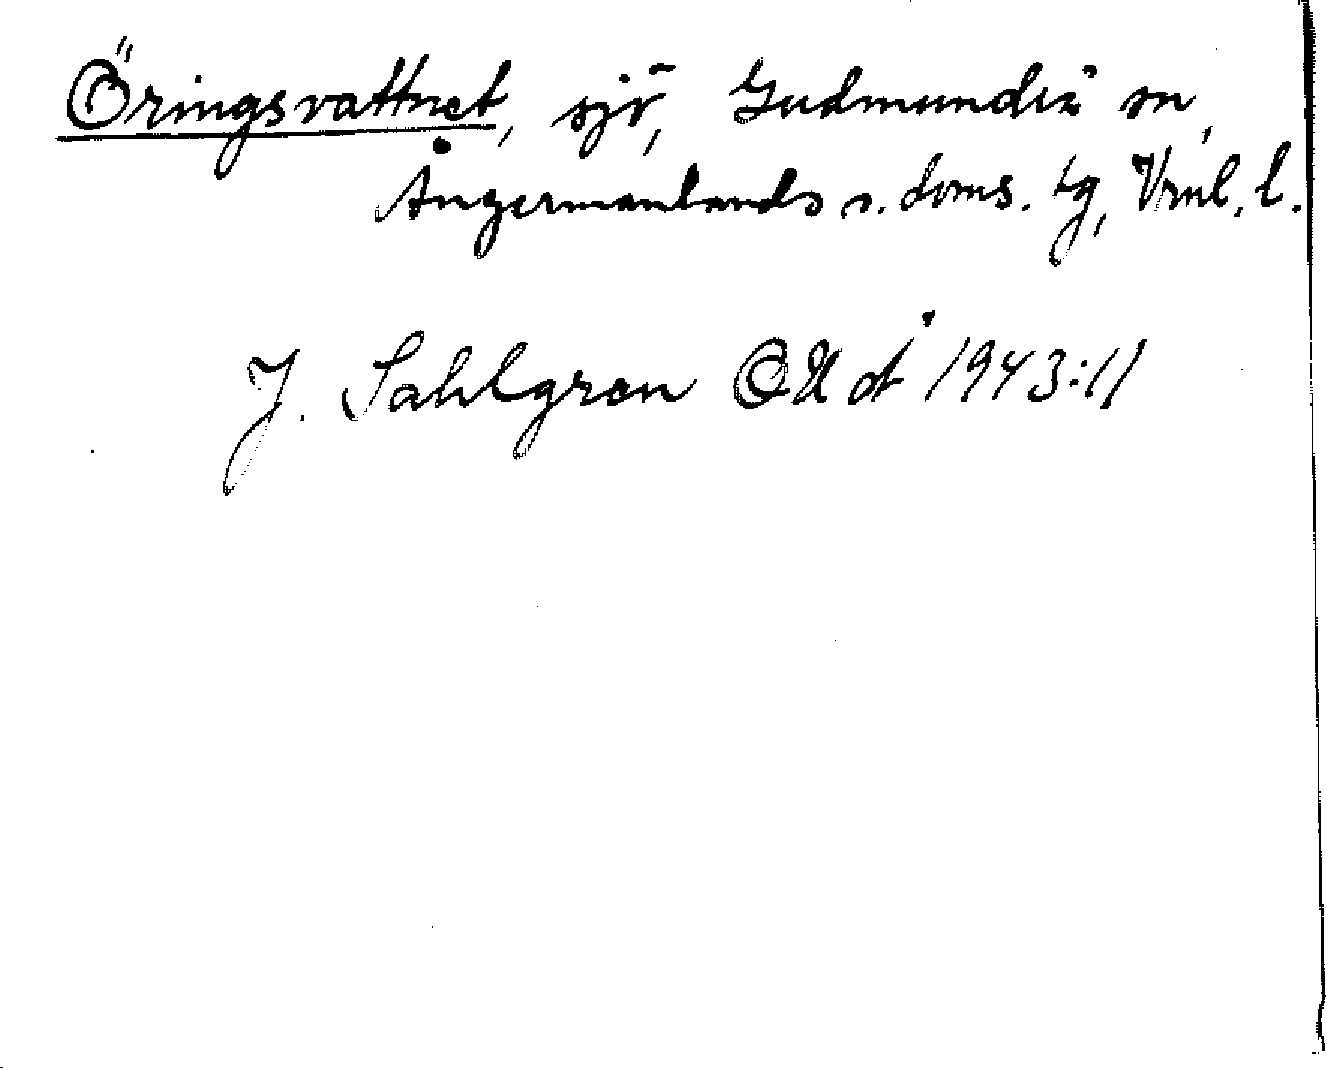 Öringsvattnet, sjö, Gudmundrå sn,
Ångermanlands s. doms. tg, Vrnl. l.
J. Sahlgren 1943:11